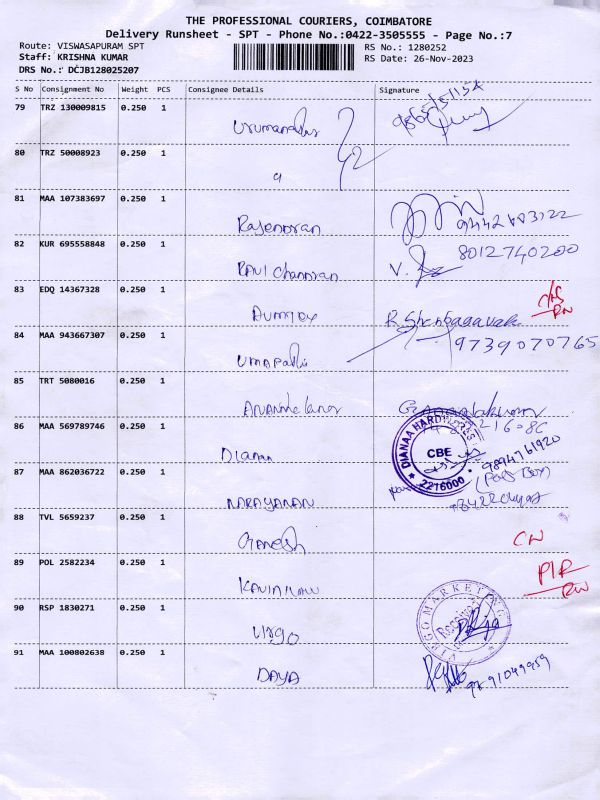 THE PROFESSIONAL COURIERS, COIMBATORE
Delivery Runsheet - SPT - Phone No.:0422-3505555 - Page No.:7
Route: VISWASAPURAM SPT RS No.: 1280252
Staff: KRISHNA KUMAR RS Date: 26-Nov-2023
DRS No.: DCJB128025207
S No Consignment No Weight PCS Consignee Details Signature
79 TRZ 130009815 0.250 1
80 TRZ 50008923 0.250 1
81 MAA 107383697 0.250 1
Rajendran
82 KUR 695558848 0.250 1 8012740200
Ravi Chandran V.
83 EDQ 14367328 0.250 1
R. Shenbagavalli
84 MAA 943667307 0.250 1 9739070765
Umapathi
85 TRT 5080016 0.250 1
86 MAA 569789746 0.250 1
DIANAA HARDWARES
CBE
2216000
Dianaa 9894761920
87 MAA 862036722 0.250 1
NARAYANAN
88 TVL 5659237 0.250 1
Ganesh CN
89 POL 2582234 0.250 1
90 RSP 1830271 0.250 1
VIRGO MARKETING
Virgo
91 MAA 100802638 0.250 1
DAYA 9791049959